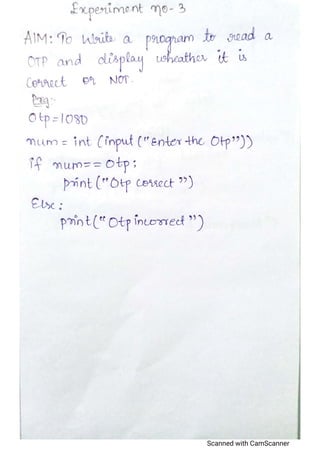 Experiment no- 3
AIM: To Write a program to read a
OTP and display wheather it is
Correct or NOT.
Prog:-
Otp=1080
num = int (input ("enter the Otp"))
if num== Otp:
print("Otp correct")
Else:
print("Otp incorrect")
Scanned with CamScanner